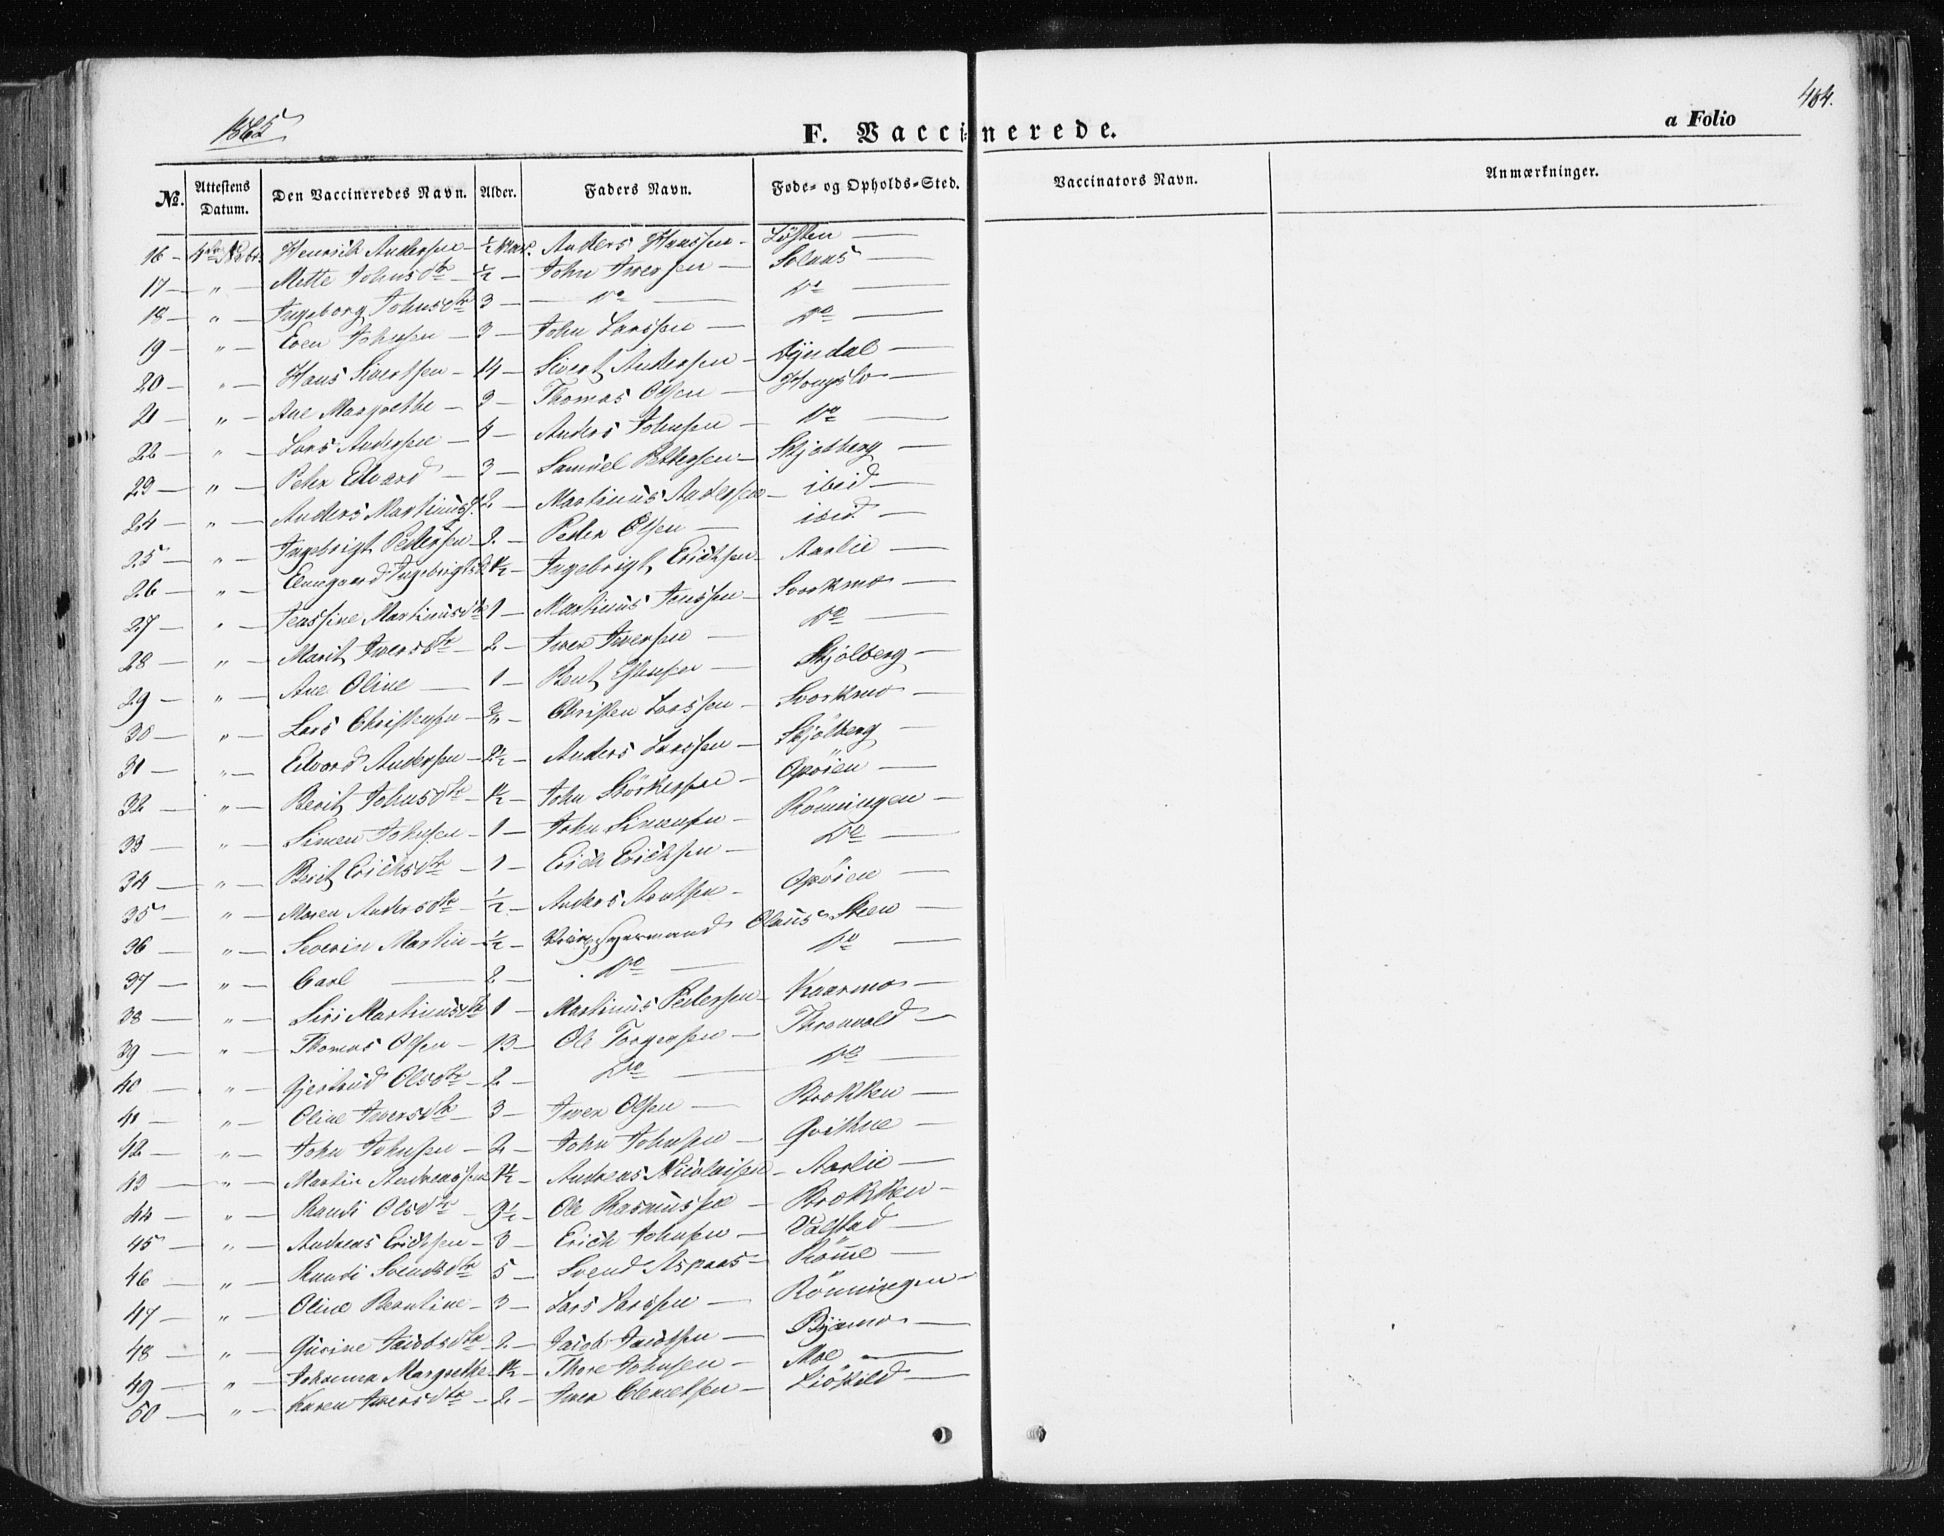 1865
F. Vaccinerede.
a Folio
404.
No. Attestens Datum. Den Vaccineredes Navn. Alder. Faders Navn. Føde- og Opholds-Sted. Vaccinators Navn. Anmærkninger.
16 — Henrik Andersen — ½ Anders Hanssen — Løsten —
17 — " — Mette Johnsdtr — ½ — John Iversen — Solaas —
18 — " — Ingeborg Johnsdtr 3 — Do — Do —
19 — " — Even Johnsen — 3 — John Larssen — Do —
20 — " — Hans Sivertsen — 14 — Sivert Andersen — Dyrdal —
21 — " — Ane Margrethe — 3 — Thomas Olsen — Hongslo —
22 — " — Lars Andersen — 4 — Anders Johnsen — Do —
23 — " — Peter Edvard — 3 — Samuel Pettersen — Skjølberg —
24 — " — Anders Martinus 2 — Martinus Andersen — ibid —
25 — " — Ingebrigt Pedersen — 2 — Peder Olsen — ibid —
26 — " — Ingebrigtsd. 1½ — Ingebrigt Erichsen — Aarlie —
27 — " — Jenssine Martinusdtr 1 — Martinus Jenssen — Svorkmo —
28 — " — Marit Iversdtr — 2 — Iver Iversen — Do —
29 — " — Ane Oline — 1 — Bent — Skjølberg —
30 — " — Lars Christensen — Christen Larssen — Svorkmo —
31 — " — Edvard Andersen — 2½ — Anders Larssen — Skjølberg —
32 — " — Berit Johnsdtr — 1½ — John Størkersen — Opøien —
33 — " — Simen Johnsen — 1 — John Simensen — Rönningen —
34 — " — Berit Erichsdtr — 1 — Erich Erichsen — Do —
35 — " — Maren Andersdtr — ½ — Anders Arntsen — Opøien —
36 — " — Severin Martin — ½ — Olaus Steen —
37 — " — Carl — 2 — Do — Do —
38 — " — Siri Martinusdtr 1 — Martinus Pedersen — Kaarmo —
39 — " — Thomas Olsen — 13 — Ole Torgersen — Thronvold —
40 — " — Gjertrud Olsdtr — 2 — Do — Do —
41 — " — Oline Iversdtr — 3 — Iver Olsen — Brokken —
42 — " — John Johnsen — 2 — John Johnsen — Qvikne —
43 — " — Martin Andreassen 1½ — Andreas Nicolaisen — Aarlie —
44 — " — Randi Olsdtr — 9½ — Ole Rasmussen — Brokken —
45 — " — Andreas Erichsen — 3 — Erich Johnsen — Valstad —
46 — " — Randi Svendsdtr 5 — Svend Aspaas — Rømme —
47 — " — Oline Berntine — 3 — Lars Larssen — Rönningen —
48 — " — Gurine Jacobsdtr — 2 — Jacob Jacobsen — Bjørmo —
49 — " — Johanna Margrethe 1½ — Thore Johnsen — Moe —
50 — " — Karen Iversdtr — 2 — Iver Clemetsen —